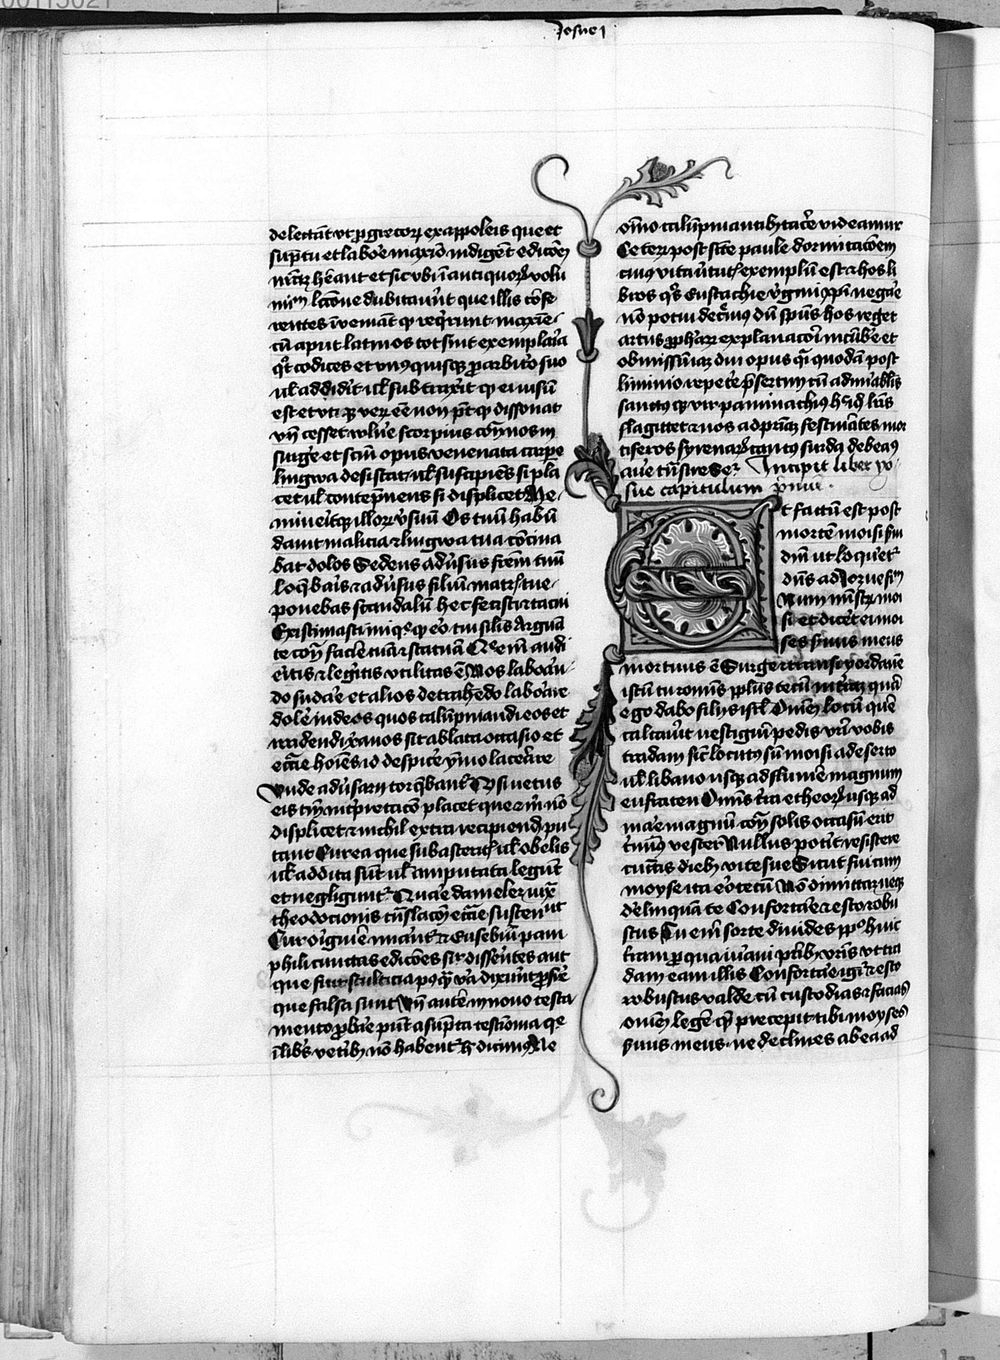 Josue 1
delectant ut p grecorum exapploeis que et
sumptu et labore maximo indigent edicionem
nostram habeant et sic ubi in antiquorum volu
minum lectione dubitaverint que illis confe
rentes inveniant quod requirunt maxime
cum aput latinos tot sint exemplaria
quot codices et unusquisque pro arbitrio suo
vel addiderit vel subtraxerit quod ei visum
est et utique verum esse non potest quod dissonat
unde cesset arcuato vulnere scorpius contra nos in
surgere et sanctum opus venenata carpere
lingwa desistat vel suscipiens si pla
cet vel contempnens si displicet Me
mineritque illorum versuum Os tuum habun
davit malicia et lingwa tua concinna
bat dolos Sedens adversus fratrem tuum
loquebaris et adversus filium matris tue
ponebas scandalum hec fecisti et tacui
Existimasti inique quod ero tui similis Argua
te contra faciem tuam et statuam Que enim audi
entis et legentis utilitas est Nos laboran
do sudare et alios detrahendo laborare
dolere iudeos quos calumpniandi eos et
irridendi christianos sit ablata occasio et
ecclesie homines id despicere ymo lacerare
Unde adversarii torquebantur Quod si vetus
eis tantum interpretatio placet que et michi non
displicet et nichil extra recipiendum pu
tant Cur ea que sub asteriscis vel obelis
vel addita sunt vel amputata legunt
et negligunt Quare danielem iuxta
theodotionis translationem ecclesie susceperunt
Cur origenem mirantur et Eusebium pam
phili cunctas ediciones similiter disserentes aut
que fuit stulticia postquam vera dixerint proferre
que falsa sunt Unde autem in novo testa
mento probare poterunt assumpta testimonia que
in libris veteribus non habentur hec dicimus Ne
omnino calumpniantibus tacere videamur
Ceterum post sancte paule dormitacionem
cuius vita virtutis exemplum est et hos li
bros quos Eustachie virgini christi negare
non potui decrevimus dum spiritus hos reget
artus prophetarum explanacioni incumbere et
obmissum iam diu opus quasi quodam post
liminio repetere presertim cum admirabilis
sanctus que vir pammachius hec idem litteris
flagitet et nos ad patriam festinantes mor
tiferos syrenarum cantus surda debeamus
aure transire Incipit liber io
sue capitulum primum
Et factum est post
mortem moisi servi
domini ut loqueretur
dominus ad Josue filium
Num ministrum moi
si et diceret ei moi
ses servus meus
mortuus est Surge et transi iordanem
istum tu et omnis populus tecum in terram quam
ego dabo filiis israel Omnem locum quem
calcaverit vestigium pedis vestri vobis
tradam sicut locutus sum moisi a deserto
et libano usque ad flumen magnum
eufraten Omnis terra etheorum usque ad
mare magnum contra solis occasum erit
terminus vester Nullus poterit resistere
cunctis diebus vite sue Sicut fui cum
moyse ita ero tecum Non dimittam neque
derelinquam te Confortare et esto robu
stus Tu enim sorte divides populo huic
terram pro qua iuravi patribus vestris ut tra
dam eam illis Confortare igitur et esto
robustus valde ut custodias et facias
omnem legem quam precepit tibi moyses
servus meus ne declines ab ea ad